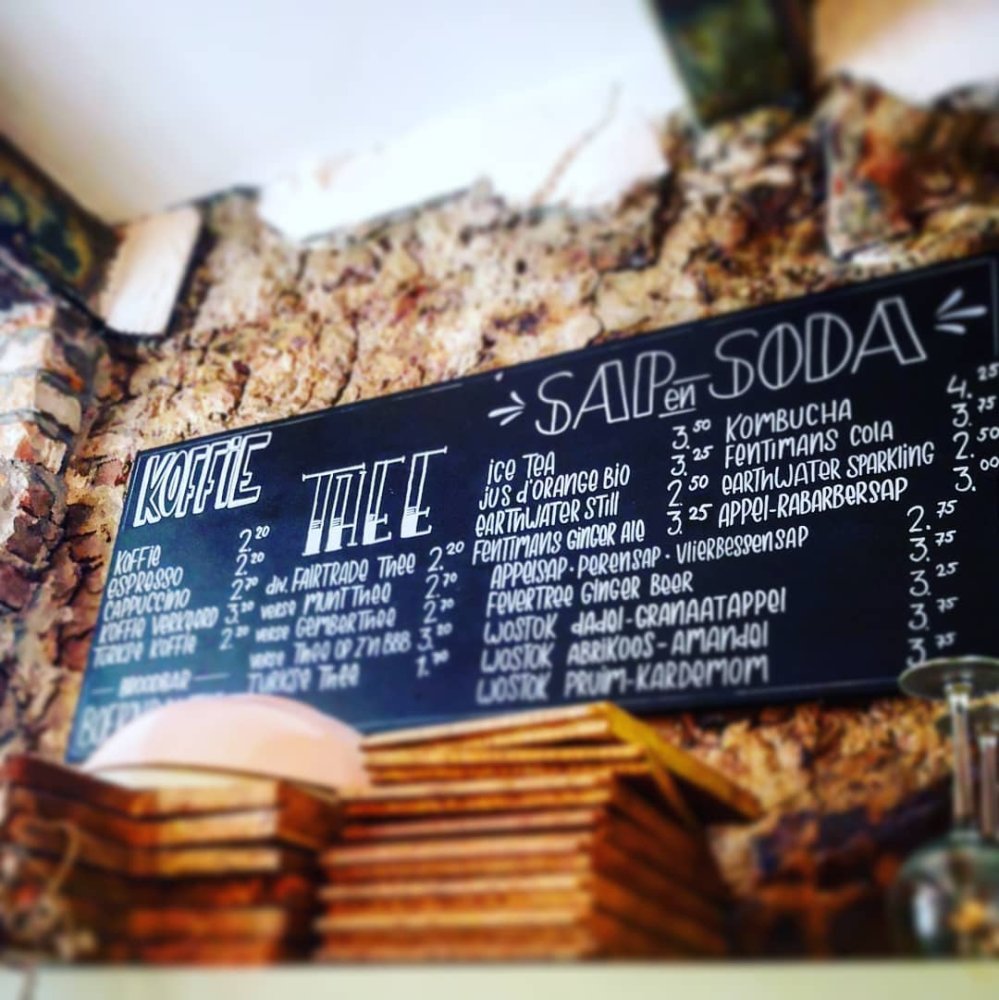 KOFFIE
KOFFIE 2.20
ESPRESSO 2.20
CAPPUCCINO 2.70
KOFFIE VERKEERD
TURKSE KOFFIE
BROODBAR
THEE
div. FAIRTRADE THEE 2.20
verse MUNTTHEE 2.70
verse GEMBERTHEE
verse THEE OP Z'N BBB
TURKSE THEE
SAP en SODA
ICE TEA 3.50
JUS d'ORANGE BIO 3.25
EARTHWATER STILL 2.50
FENTIMANS GINGER ALE 3.25
KOMBUCHA 4.25
FENTIMANS COLA 3.75
EARTHWATER SPARKLING 2.50
APPEL-RABARBERSAP 3.00
APPELSAP · PERENSAP · VLIERBESSENSAP 2.75
FEVERTREE GINGER BEER 3.75
WOSTOK DADEL-GRANAATAPPEL 3.25
WOSTOK ABRIKOOS-AMANDEL 3.75
WOSTOK PRUIM-KARDEMOM